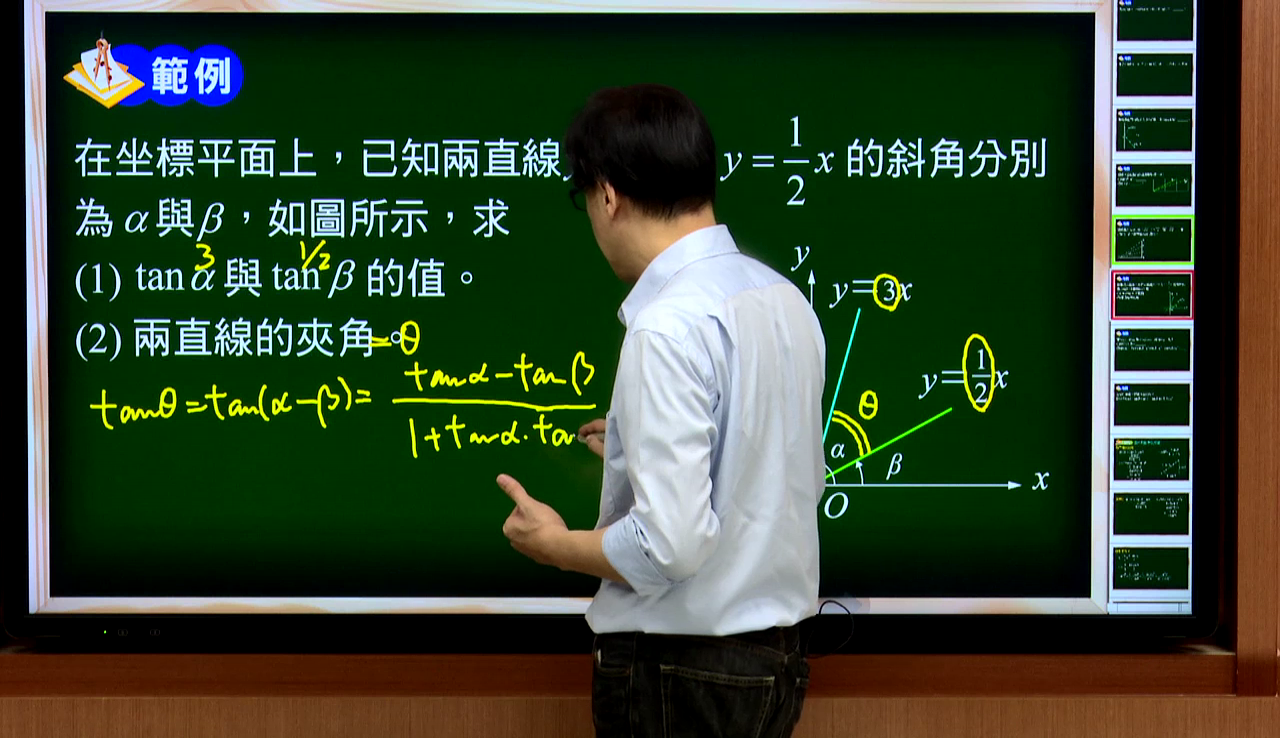 範例
在坐標平面上，已知兩直線 y = 1/2 x 的斜角分別
為 α 與 β，如圖所示，求
3 1/2
(1) tan α 與 tan β 的值。
(2) 兩直線的夾角。= θ
tanθ = tan(α − β) = (tanα − tanβ)/(1 + tanα · ta
y
y = 3x
y = 1/2 x
θ
α
β
x
O